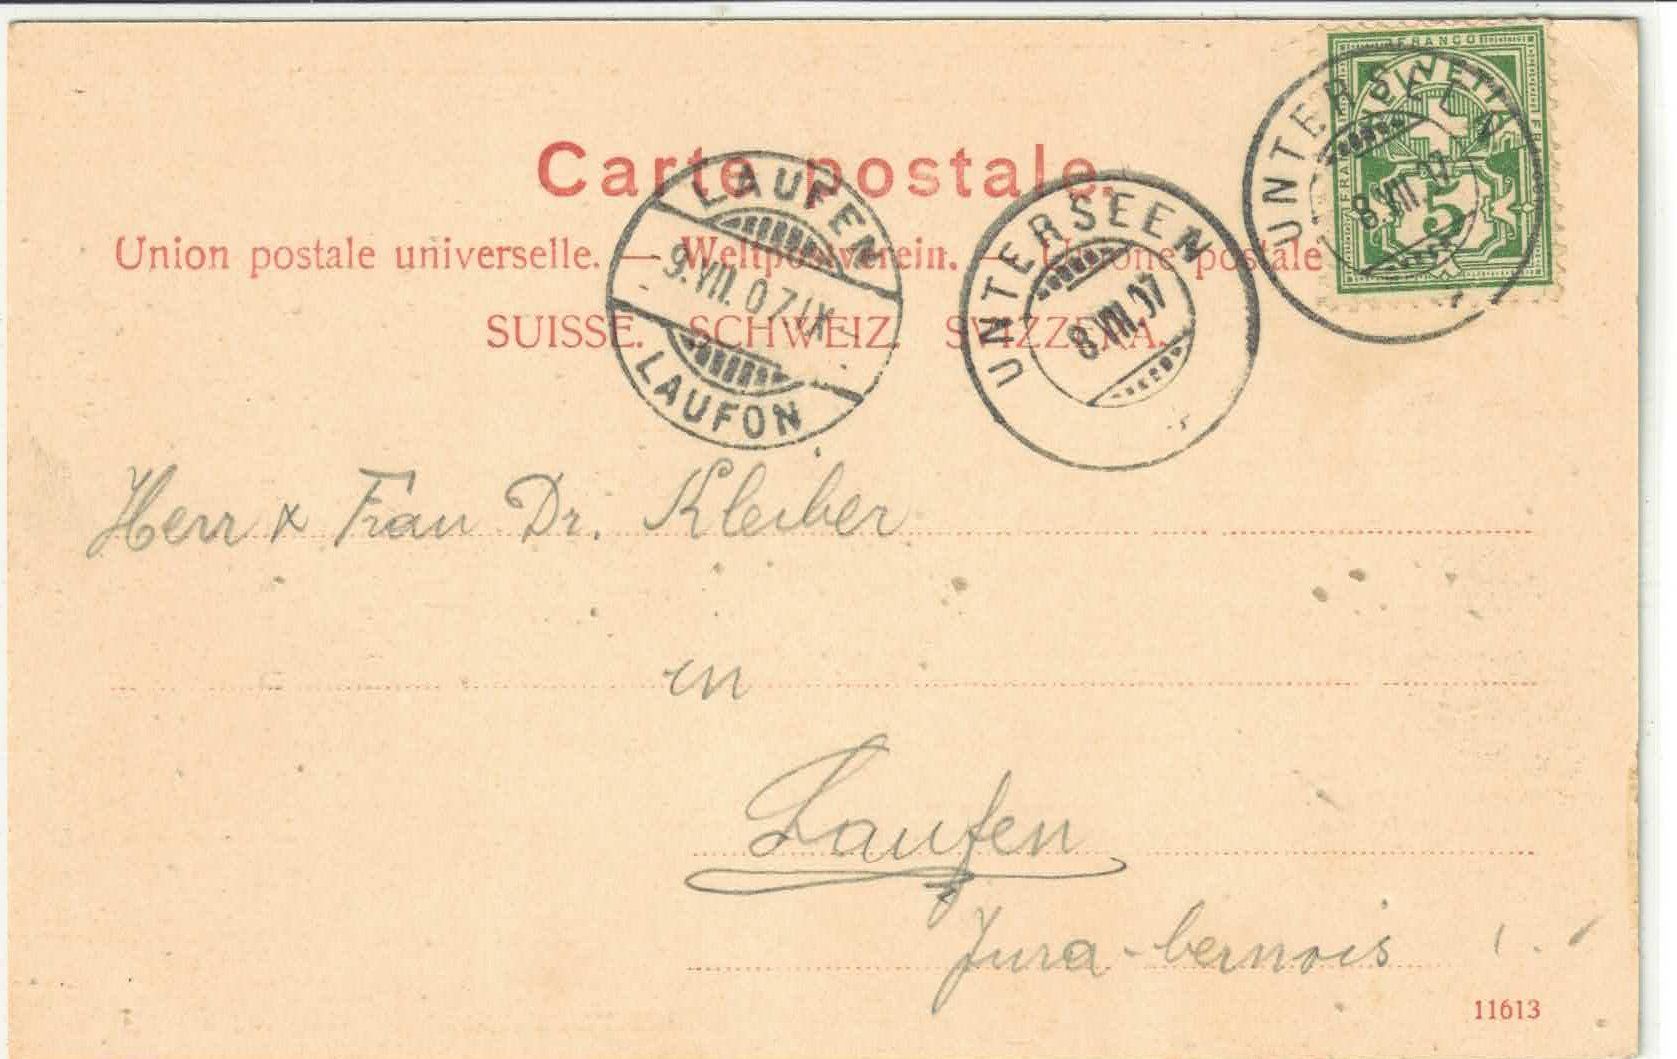 FRANCO
HELVETIA
5
UNTERSEEN
8.VII.07
Carte postale.
LAUFEN
9.VII.07.IX
LAUFON
UNTERSEEN
8.VII.07
Union postale universelle. — Weltpostverein. — Unione postale
SUISSE. SCHWEIZ. SVIZZERA.
Herr & Frau Dr. Kleiber
in
Laufen
Jura-bernois
11613